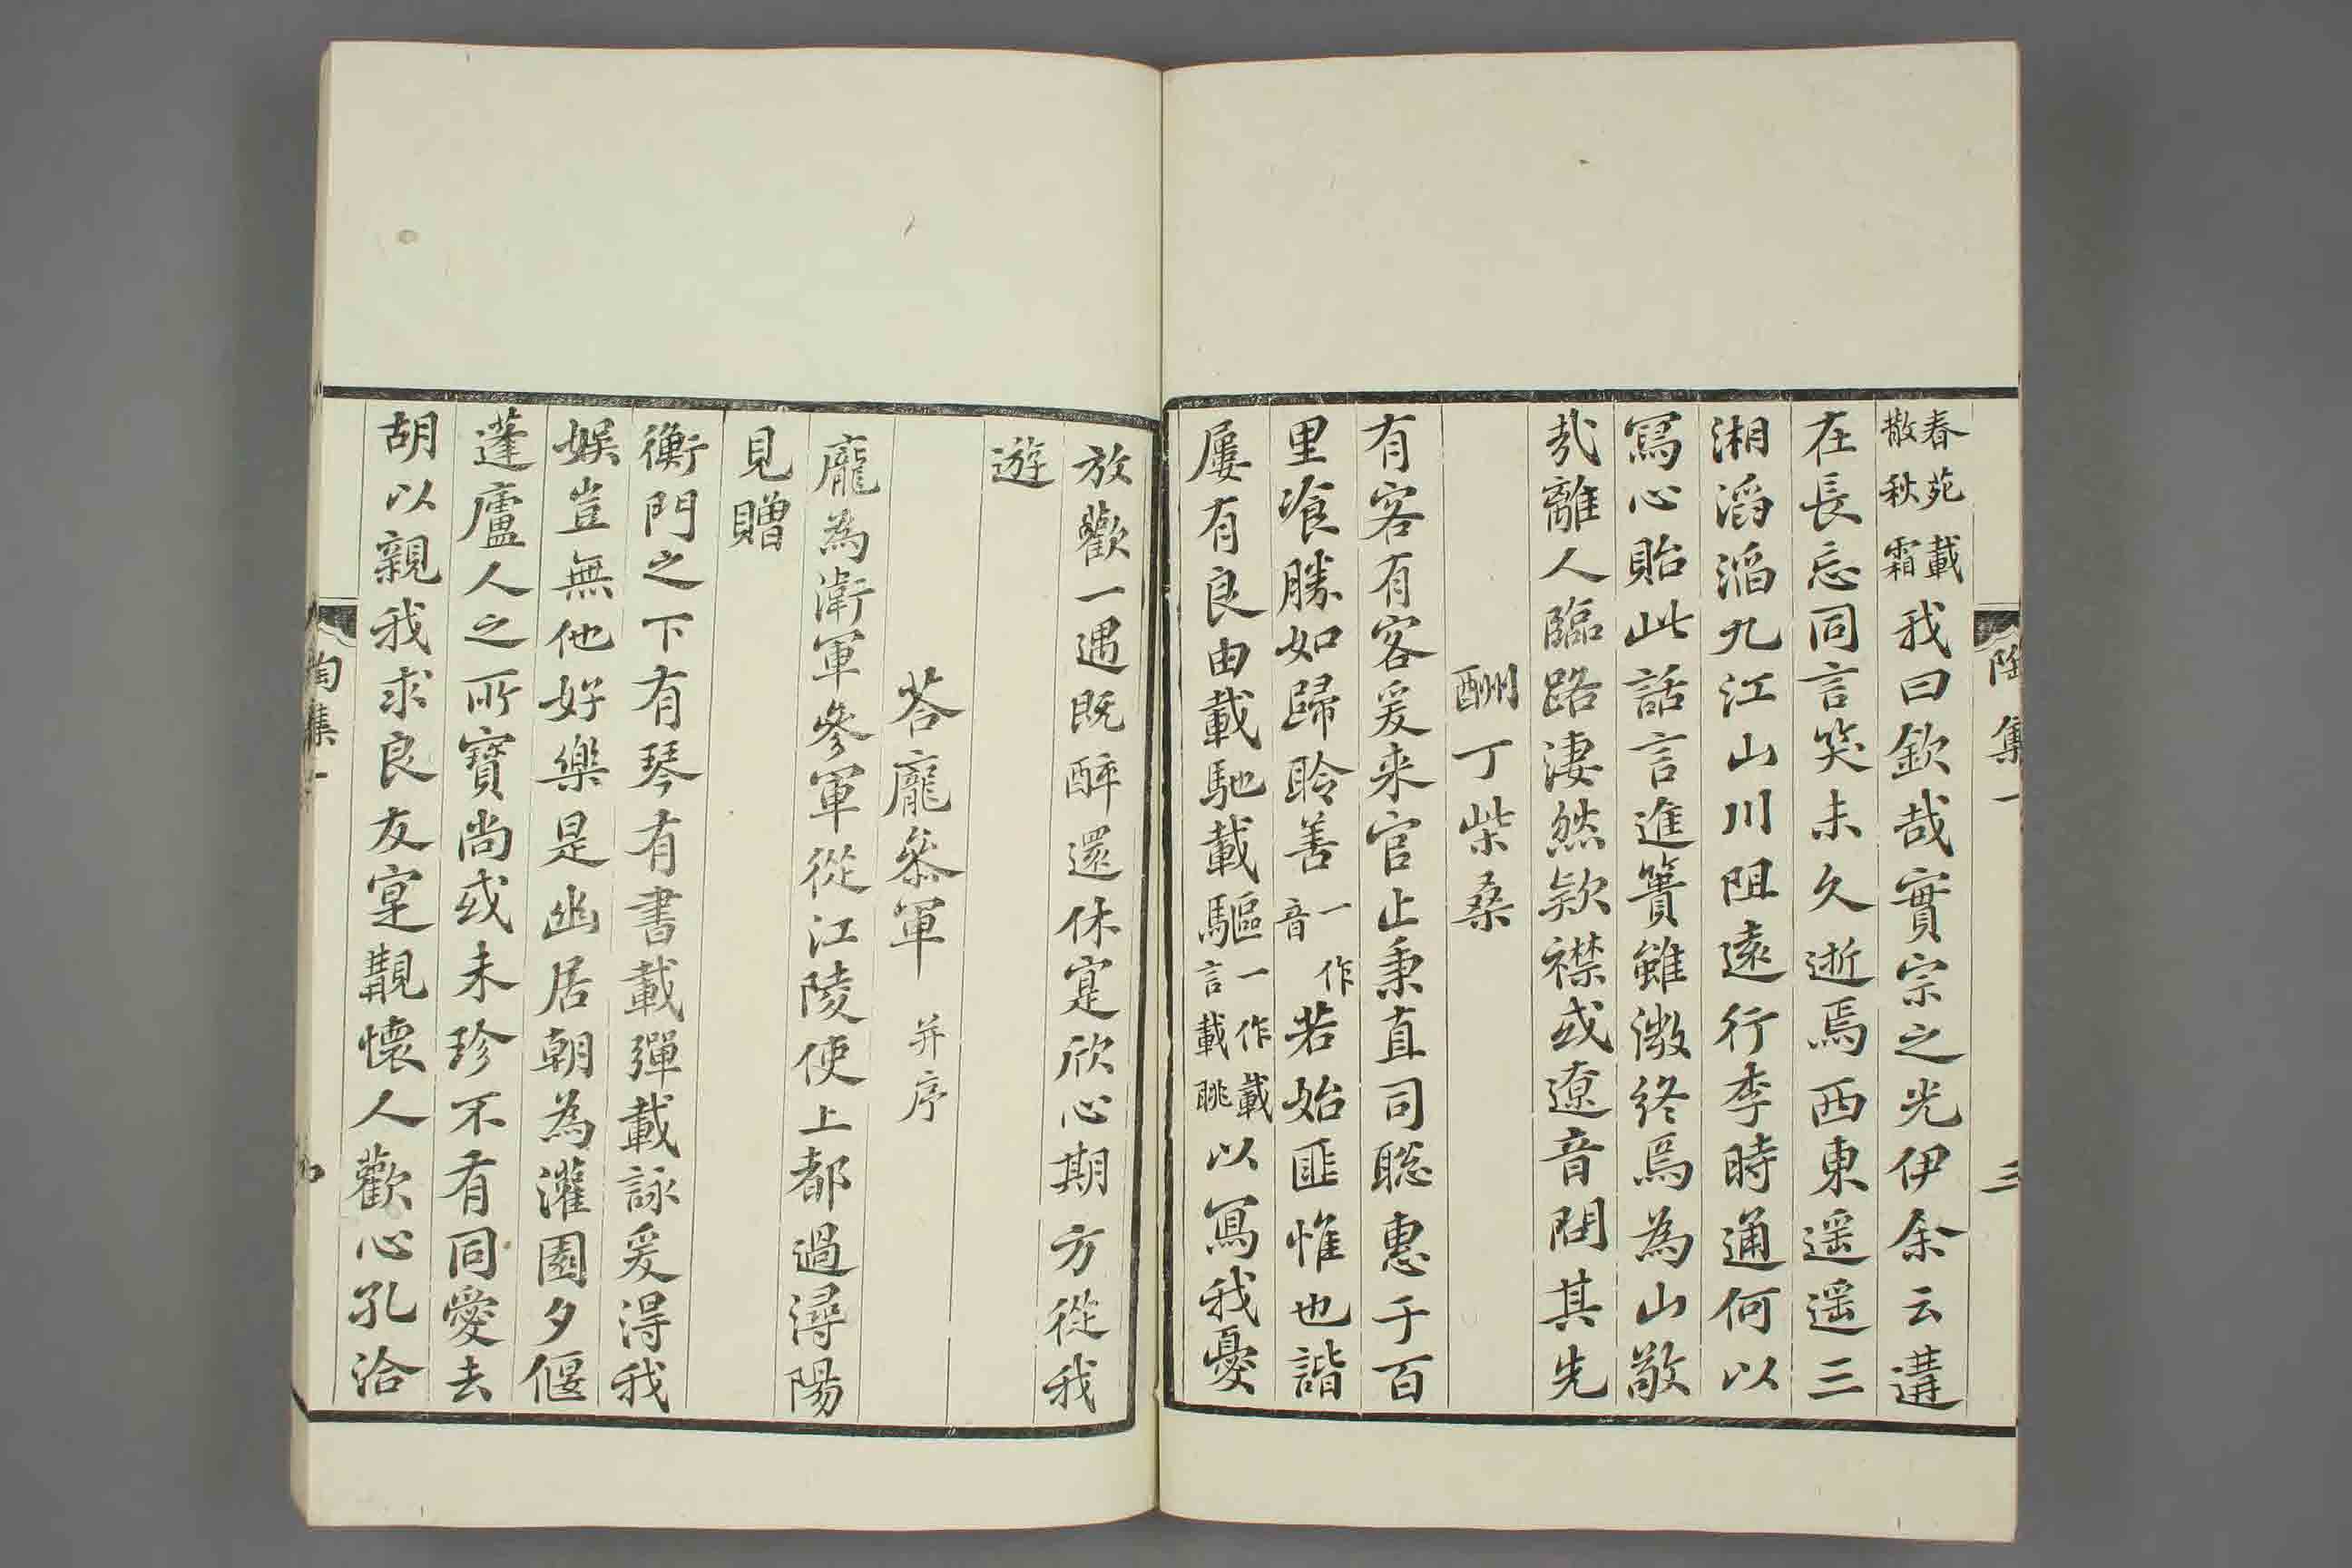 陶集一 三
春苑載散秋霜我曰欽哉實宗之光伊余云遘
在長忘同言笑未久逝焉西東遥遥三
湘滔滔九江山川阻遠行李時通何以
寫心貽此話言進簣雖微終焉為山敬
㢤離人臨路淒然欵襟或遼音問其先
酬丁柴桑
有客有客爰来官止秉直司聡惠于百
里飡勝如歸聆善一作音若始匪惟也諧
屢有良由載馳載驅一作載言載眺以寫我憂
放歡一遇既醉還休寔欣心期方從我
遊
荅龐叅軍 并序
龐為衛軍參軍從江陵使上都過潯陽
見贈
衡門之下有琴有書載彈載詠爰得我
娛豈無他好樂是幽居朝為灌園夕偃
蓬廬人之所寶尚或未珍不有同愛去
胡以親我求良友寔覯懷人歡心孔洽
陶集一